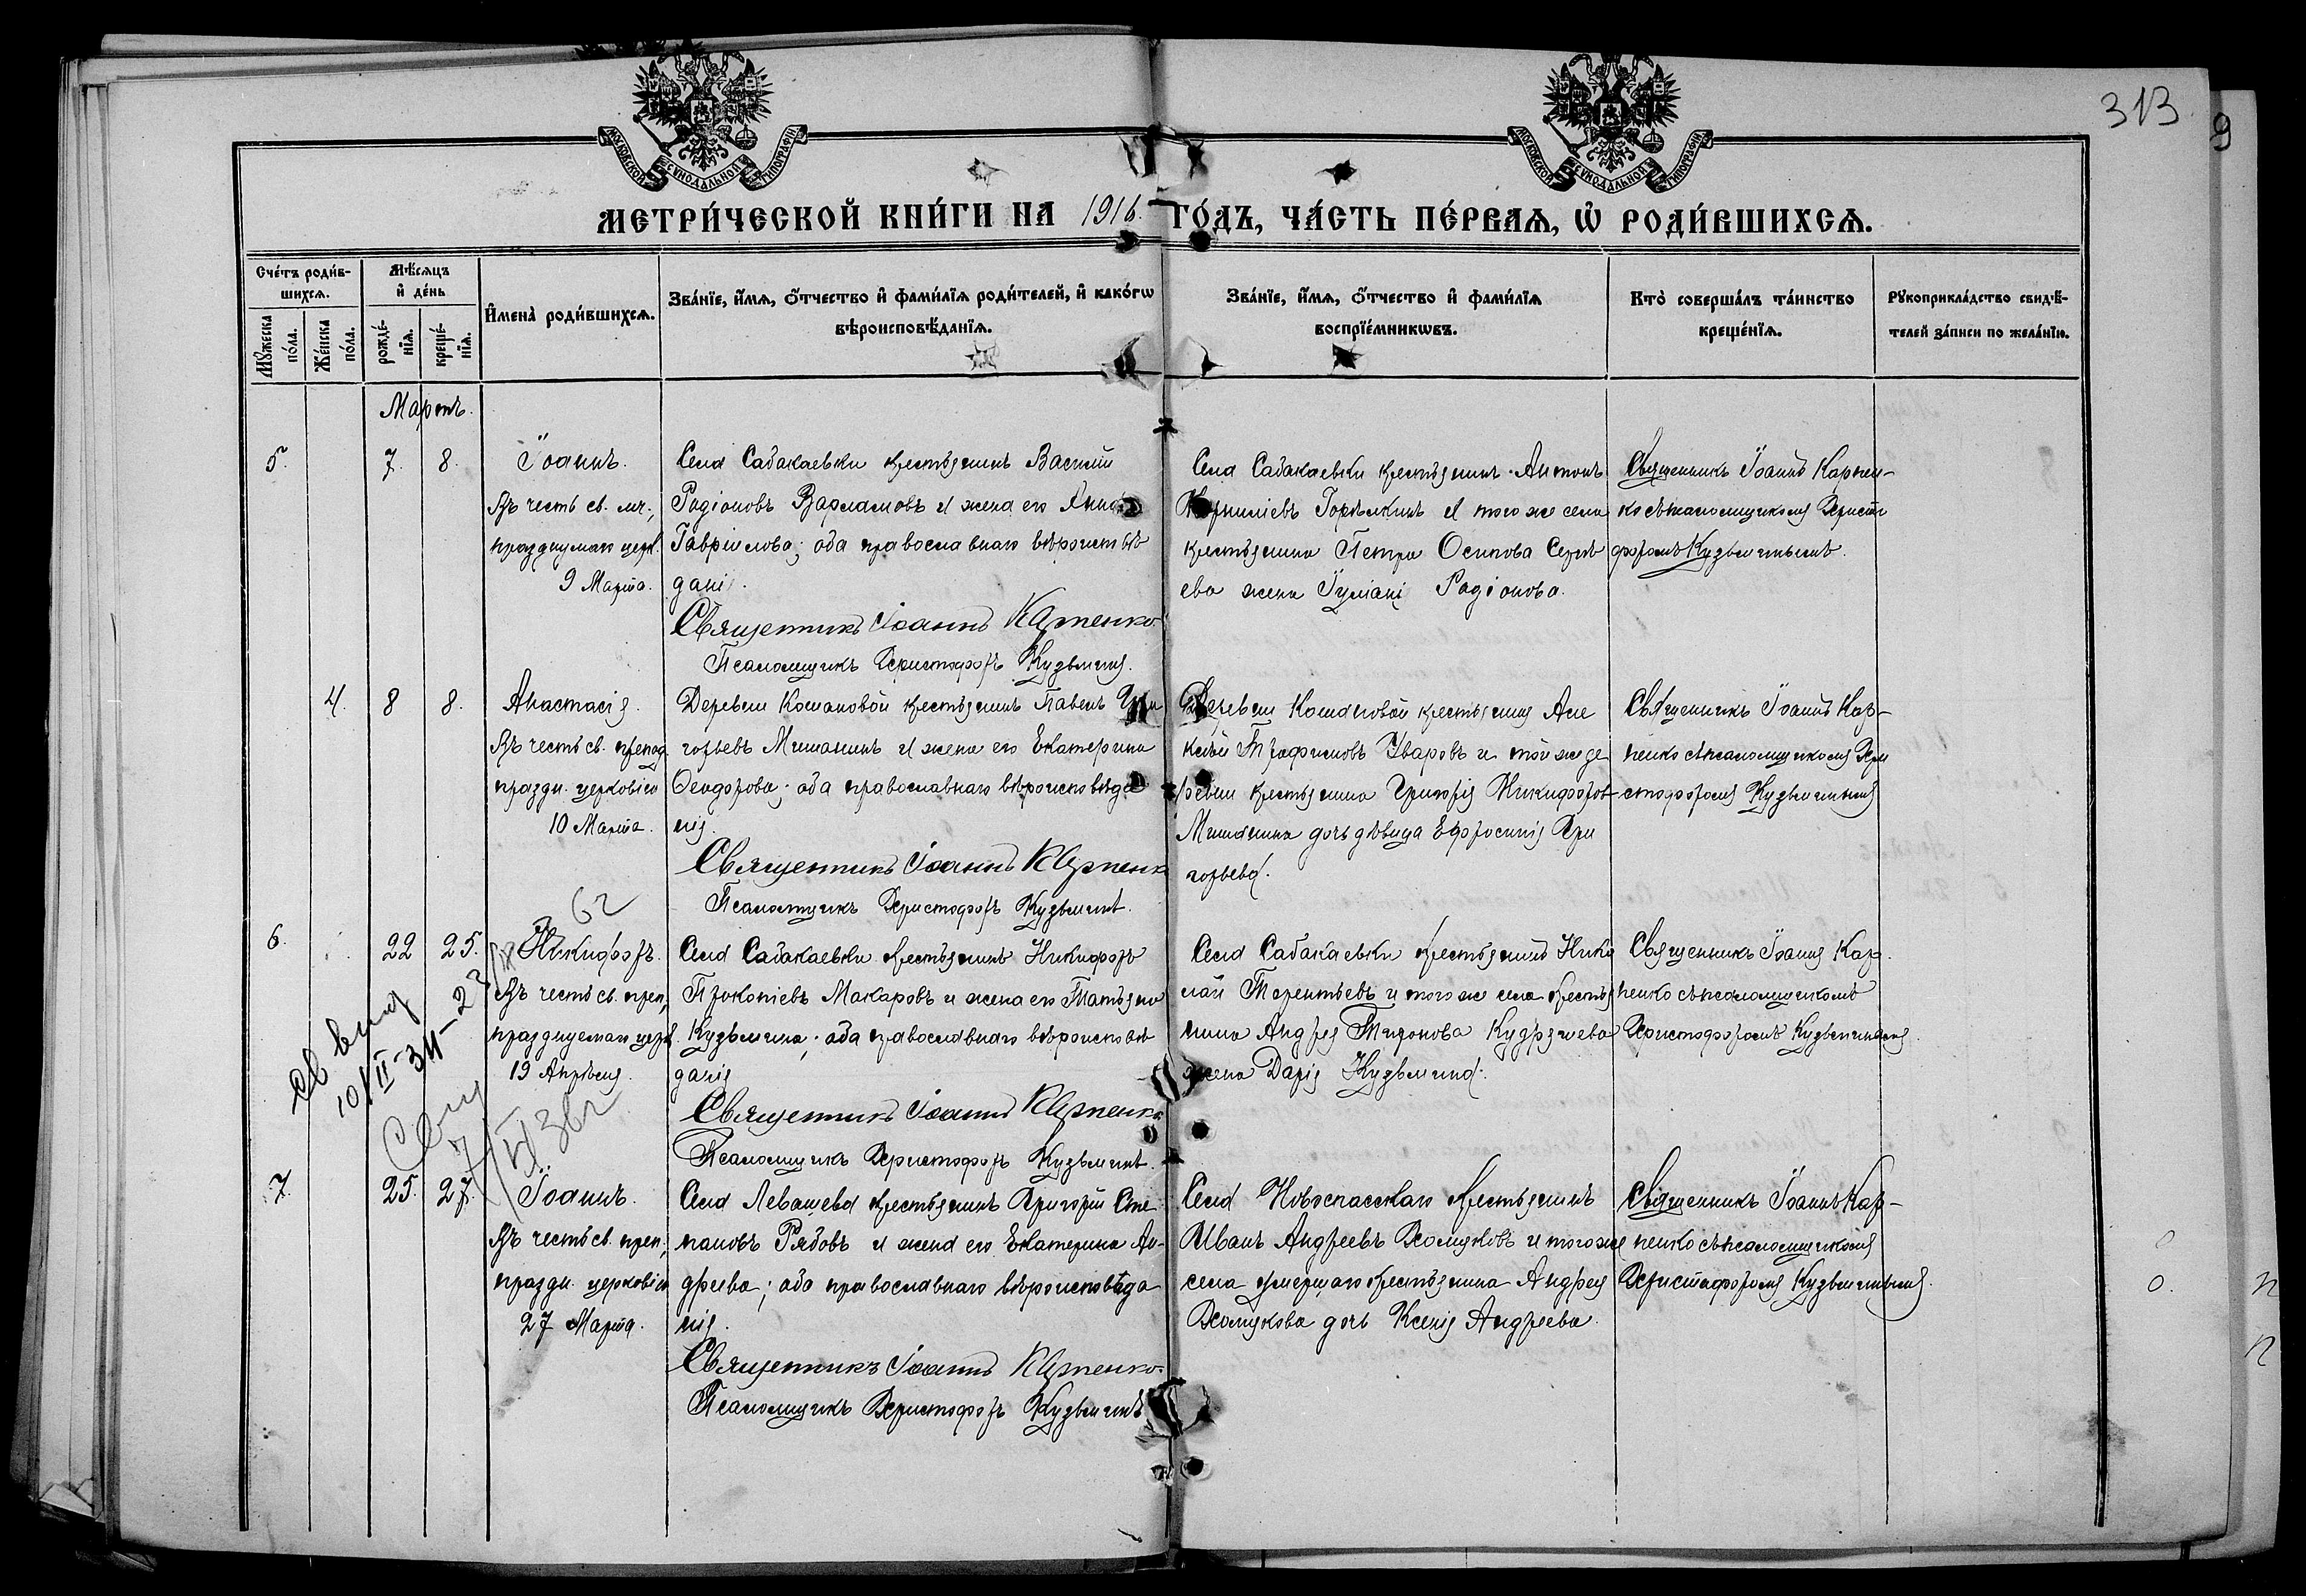 313
9
МОСКОВСКОЙ СѴНОДАЛЬНОЙ ТИПОГРАФІИ
МОСКОВСКОЙ СѴНОДАЛЬНОЙ ТИПОГРАФІИ
МЕТРИ́ЧЕСКОЙ КНИ́ГИ НА 1916 ГО́ДЪ, ЧА́СТЬ ПЕ́РВАѦ, Ѡ҆ РОДИ́ВШИХСѦ.
Сче́тъ роди́в-
шихсѧ.
Мꙋ́жеска по́ла.
Же́нска по́ла.
Мѣ́сѧцъ
и҆ де́нь
рожде́-
нїѧ.
креще́-
нїѧ.
И҆мена̀ роди́вшихсѧ.
Зва́нїе, и҆́мѧ, ѻ҆́тчество и҆ фами́лїѧ роди́телей, и҆ како́гѡ
вѣроисповѣ́данїѧ.
Зва́нїе, и҆́мѧ, ѻ҆́тчество и҆ фами́лїѧ
воспрїе́мникѡвъ.
Кто̀ соверша́лъ та́инство
креще́нїѧ.
Рꙋкоприкла́дство свидѣ́-
телей за́писи по жела́нїю.
Мартъ.
5. 7. 8.
Іоаннъ.
Въ честь св. мч.,
празднумаго церк.
9 Марта.
Села Сабакаевки крестьянинъ Василій
Родіоновъ Варламовъ и жена его Анна
Гавріилова; оба православнаго вѣроисповѣ
данія.
Священникъ Іоаннъ Карпенко
Псаломщикъ Христофоръ Кузьминъ.
Села Сабакаевки крестьянинъ Антонъ
Корниліевъ Горѣлкинъ и того же села
крестьянина Петра Осипова Сергѣ
ева жена Іуліанія Родіонова.
Священникъ Іоаннъ Карпен-
ко съ псаломщикомъ Христо
форомъ Кузьминымъ.
4. 8 8.
Анастасія.
Въ честь св. препод.
праздн. церковію
10 Марта.
Деревни Кошановой крестьянинъ Павелъ Гри
горьевъ Мишанинъ и жена его Екатерина
Ѳеодорова; оба православнаго вѣроисповѣда
нія.
Священникъ Іоаннъ Карпенко
Псаломщикъ Христофоръ Кузьминъ.
Деревни Кошановой крестьянинъ Але
ксѣй Трофимовъ Уваровъ и той же де
ревни крестьянина Григорія Никифоров
Мишанина дочь дѣвица Ефросинія Гри
горьева.
Священникъ Іоаннъ Кар-
пенко съ псаломщикомъ Хри
стофоромъ Кузьминымъ
62
6. 22 25.
Никифоръ.
Въ честь св. преп.,
празднуемаго церк.
19 Апрѣля.
Села Сабакаевки крестьянинъ Никифоръ
Прокопіевъ Макаровъ и жена его Татьяна
Кузьмина; оба православнаго вѣроисповѣ
данія
Священникъ Іоаннъ Карпенко
Псаломщикъ Христофоръ Кузьминъ.
Села Сабакаевки крестьянинъ Нико
лай Терентьевъ и того же села крестья
нина Андрея Тихонова Кудряшева
жена Дарія Кузьмина.
Священникъ Іоаннъ Кар-
пенко съ псаломщикомъ
Христофоромъ Кузьминымъ.
7. 25. 27.
Іоаннъ.
Въ честь св. преп.,
праздн. церковію
27 Марта.
Села Левашева крестьянинъ Григорій Сте
пановъ Рябовъ и жена его Екатерина Ан-
дреева; оба православнаго вѣроисповѣда
нія.
Священникъ Іоаннъ Карпенко.
Псаломщикъ Христофоръ Кузьминъ
Села Новоспасскаго крестьянинъ
Иванъ Андреевъ Хомяковъ и того же
села умершаго крестьянина Андрея
Хомякова дочь Ксенія Андреева.
Священникъ Іоаннъ Кар-
пенко съ псаломщикомъ
Христофоромъ Кузьминымъ.